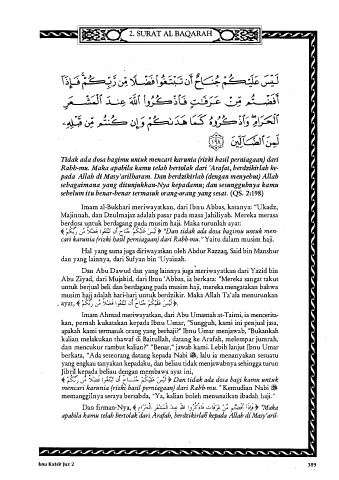 2. SURAT AL BAQARAH
لَيْسَ عَلَيْكُمْ جُنَاحٌ أَن تَبْتَغُوا فَضْلًا مِّن رَّبِّكُمْ فَإِذَا
أَفَضْتُم مِّنْ عَرَفَاتٍ فَاذْكُرُوا اللَّهَ عِندَ الْمَشْعَرِ
الْحَرَامِ وَاذْكُرُوهُ كَمَا هَدَاكُمْ وَإِن كُنتُم مِّن قَبْلِهِ
لَمِنَ الضَّالِّينَ ﴿١٩٨﴾
Tidak ada dosa bagimu untuk mencari karunia (rizki hasil perniagaan) dari
Rabb-mu. Maka apabila kamu telah bertolak dari 'Arafat, berdzikirlah ke-
pada Allah di Masy'arilharam. Dan berdzikirlah (dengan menyebut) Allah
sebagaimana yang ditunjukkan-Nya kepadamu; dan sesungguhnya kamu
sebelum itu benar-benar termasuk orang-orang yang sesat. (QS. 2:198)
Imam al-Bukhari meriwayatkan, dari Ibnu Abbas, katanya: "Ukadz,
Majinnah, dan Dzulmajaz adalah pasar pada masa Jahiliyah. Mereka merasa
berdosa untuk berdagang pada musim haji. Maka turunlah ayat:
﴿ لَيْسَ عَلَيْكُمْ جُنَاحٌ أَن تَبْتَغُوا فَضْلًا مِّن رَّبِّكُمْ ﴾ "Dan tidak ada dosa bagimu untuk men-
cari karunia (rizki hasil perniagaan) dari Rabb-mu." Yaitu dalam musim haji.
Hal yang sama juga diriwayatkan oleh Abdur Razzaq, Said bin Manshur
dan yang lainnya, dari Sufyan bin 'Uyainah.
Dan Abu Dawud dan yang lainnya juga meriwayatkan dari Yazid bin
Abu Ziyad, dari Mujahid, dari Ibnu Abbas, ia berkata: "Mereka sangat takut
untuk berjual beli dan berdagang pada musim haji, mereka mengatakan bahwa
musim haji adalah hari-hari untuk berdzikir. Maka Allah Ta'ala menurunkan
ayat, ﴿ لَيْسَ عَلَيْكُمْ جُنَاحٌ أَن تَبْتَغُوا فَضْلًا مِّن رَّبِّكُمْ ﴾
Imam Ahmad meriwayatkan, dari Abu Umamah at-Taimi, ia mencerita-
kan, pernah kukatakan kepada Ibnu Umar, "Sungguh, kami ini penjual jasa,
apakah kami termasuk orang yang berhaji?" Ibnu Umar menjawab, "Bukankah
kalian melakukan thawaf di Baitullah, datang ke Arafah, melempar jumrah,
dan mencukur rambut kalian?" "Benar," jawab kami. Lebih lanjut Ibnu Umar
berkata, "Ada seseorang datang kepada Nabi ﷺ, lalu ia menanyakan sesuatu
yang engkau tanyakan kepadaku, dan beliau tidak menjawabnya sehingga turun
Jibril kepada beliau dengan membawa ayat ini,
﴿ لَيْسَ عَلَيْكُمْ جُنَاحٌ أَن تَبْتَغُوا فَضْلًا مِّن رَّبِّكُمْ ﴾ Dan tidak ada dosa bagi kamu untuk
mencari karunia (rizki hasil perniagaan) dari Rabb-mu." Kemudian Nabi ﷺ
memanggilnya seraya bersabda, "Ya, kalian boleh menunaikan ibadah haji."
Dan firman-Nya, ﴿ فَإِذَا أَفَضْتُم مِّنْ عَرَفَاتٍ فَاذْكُرُوا اللَّهَ عِندَ الْمَشْعَرِ الْحَرَامِ ﴾ "Maka
apabila kamu telah bertolak dari Arafah, berdzikirlah kepada Allah di Masy'aril-
Ibnu Katsir Juz 2
389